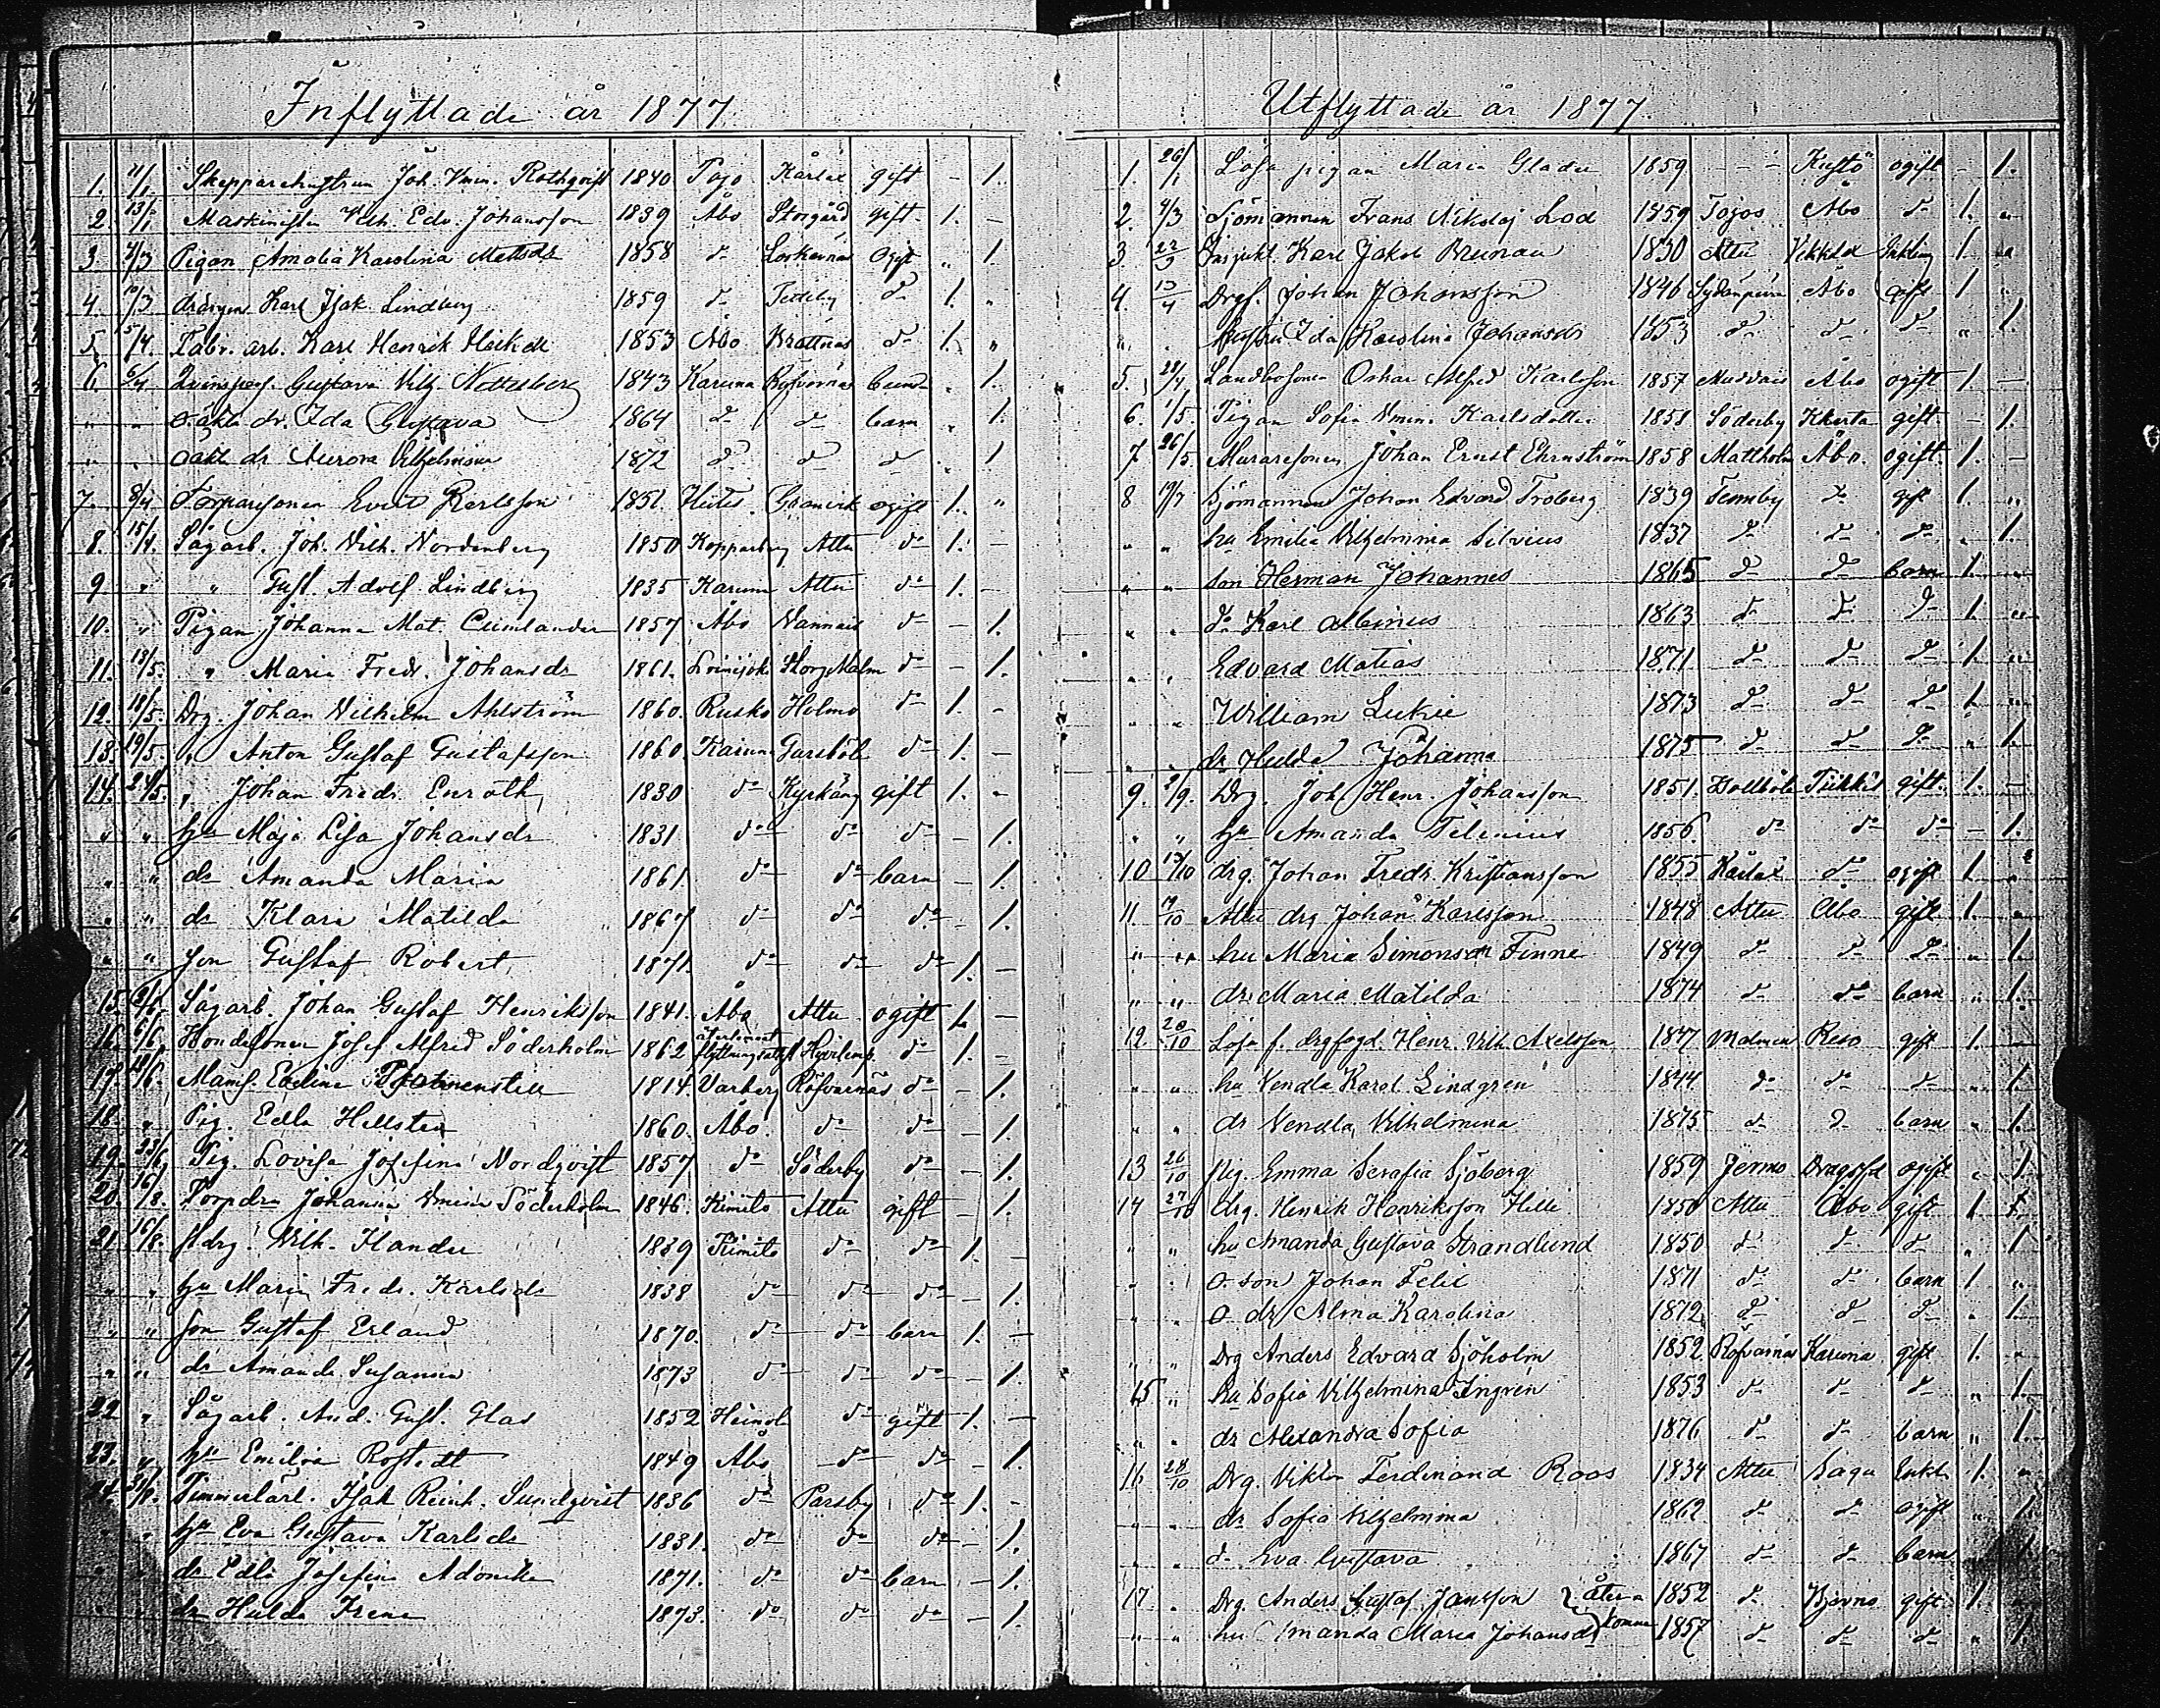 Inflyttade år 1877
1. 11/1 Skepparehustrun Joh. Vmin. Rothqvist 1840 Pojo Kårlax gift - 1.
2. 13/1 Maskinisten Vilh. Edv. Johansson 1839 Åbo Storgård gift 1. -
3. 2/3 Pigan Amalia Karolina Mattsdr 1858 do ogift " 1.
4. /3 drängen Karl Isak Lindberg 1859 do do 1. "
5. 5/4. Fabr. arb. Karl Henrik 1853 Åbo Brattnäs do 1. "
6. 6/4 Gustava Vilh. 1843 Karuna Röfvarnäs " 1.
" " o.äkta dr. Ida Gustava 1864 do do barn " 1.
" " oäkt dr Aurora Vilhelmina 1872 do do do " 1
7. 8/4 Torparsonen Evert Karlsson 1851. Hitis ogift 1. "
8. 15/4. Sågarb. Joh. Wilh. Nordenberg 1850 Kopparberg Attu do 1. -
9 " " Gust. Adolf Lindberg 1835 Karuna Attu do 1. -
10. " Pigan Johanna Mat. 1857 Åbo do - 1.
11. 13/5. " Maria Fredr. Johansdr 1861. do - 1.
12. 18/5. Drg. Johan Wilhelm Ahlström 1860. Rusko Holmo do 1. -
13. 19/5. " Anton Gustaf Gustafsson 1860. Karuna Garsböle do 1. -
14. 24/5. " Johan Fredr. Enroth 1830 do Kyrkäng gift 1. -
" " hu Maja Lisa Johansdr 1831 do do do - 1.
" " dr Amanda Maria 1861 do do barn - 1.
" " dr Klara Matilda 1867 do do do - 1.
" " son Gustaf Robert 1871. do do do 1. -
15. Sågarb. Johan Gustaf Henriksson 1841. Åbo Attu ogift 1. -
16. 6/6. Josef Alfred Söderholm 1862 återlemnat flyttningsattest do 1. -
17. /6. Mams. Evelina 1814. Varberg Röfvarnäs do - 1.
18. " Pig. Edla Hellsten 1860. Åbo. do do - 1.
19. 23/6 Pig. Lovisa Josefina Nordqvist 1857 do Söderby do - 1.
20. 16/8. Torpdr. Johanna Vmina Söderholm 1846. Kimito Attu gift - 1.
21. 16/8. fldrg. Wilh. Flander 1839 Kimito do do 1. -
" " hu Maria Fredr. Karlsdr 1838 do do do - 1.
" " son Gustaf Erland 1870. do do barn 1. -
" " dr Amanda Susanna 1873 do do do - 1.
22 " Sågarb. And. Gust. Glas 1852 do gift 1. -
23. " hu Emilia Rostedt 1849 Åbo do do - 1.
24. Timmerkarl. Isak Reinh. Sundqvist 1836 do Parsby do 1. -
" " hu Eva Gustava Karlsdr 1831. do do do - 1.
" " dr Edla Josefina 1871. do do barn - 1.
" " dr Hulda Irene 1873. do do do - 1.
Utflyttade år 1877.
1. 26/1 Lösa pigan Maria Glader 1859 - - Kustö ogift - 1.
2. 4/3 Sjömannen Frans Nikolaj Lod 1859 Tojos Åbo do 1. "
3. 22/3 Inspekt. Karl Jakob 1830 Attu 1. "
4. 13/4 Drgf. Johan Johansson 1846 Sydänperä Åbo gift 1 "
" " hustru Ida Karolina Johansdr 1853 do do do " 1.
5. 28/4 Landbosonen Oskar Alfred Karlsson 1857 Åbo ogift 1. -
6. 1/5. Pigan Sofia Vmin. Karlsdotter 1858 Söderby gift. - 1.
7 26/5. Muraresonen Johan Ernst Ehrnström 1858 Mattholm Åbo. ogift. 1. -
8 19/7 Sjömannen Johan Edvard Froberg 1839 Tennby do gift 1. "
" " hu Emilia Vilhelmina Silvius 1837 do do do " 1.
" " son Herman Johannes 1865 do do barn 1. "
" " do Karl Albinus 1863 do do do 1. "
" " Edvard Matias 1871 do do do 1. "
" " William 1873 do do do 1. "
" " dr Hulda Johanna 1875 do do do " 1.
9. 2/9. Drg. Joh. Henr. Johansson 1851. Tiikkis gift. 1. -
" " hu Amanda Telenius 1856 do do do - 1.
10 13/10 drg. Johan Fredr. Kristiansson 1855 Kårlax do ogift 1 "
11. /10 Attu drg Johan Karlsson 1848 Attu Åbo gift 1. "
" " hu Maria Simonsdr Finne 1849 do do do " 1.
" " dr. Maria Matilda 1874 do do barn " 1.
12 20/10 Lösa f. drgfogd. Henr. Vilh. Axelsson 1847 Malmen Reso gift 1. -
" " hu Vendla Karol. Lindgren 1844 do do do " 1.
" " dr Vendla Vilhelmina 1875 do do barn " 1.
13 26/10 pig. Emma Serafia Sjöberg 1859 Jermo Dragsfjd ogift " 1.
14 27/10 drg. Henrik Henriksson Hille 1850 Attu Åbo gift 1.
" " hu Amanda Gustava Strandlund 1850 do do do " 1
" " o. son Johan Felix 1871 do do barn 1. "
" " o dr Alma Karolina 1872 do do do " 1.
" " Drg Anders Edvard Sjöholm 1852 Röfvarnäs Karuna gift 1. "
15 " hu Sofia Vilhelmina Ingren 1853 do do do " 1.
" " dr Alexandra Sofia 1876 do do barn " 1.
16 28/10 Drg. Viktor Ferdinand Roos 1834 Attu Sagu Enkl. 1. "
" " dr Sofia Vilhelmina 1862 do do ogift " 1.
" " do Eva Gustava 1867 do do barn " 1.
17 " Drg. Anders Gustaf Jansson åter- 1852 do Bjerno gift 1. "
" " hu Amanda Maria Johansdr komne 1857 do do do " 1.